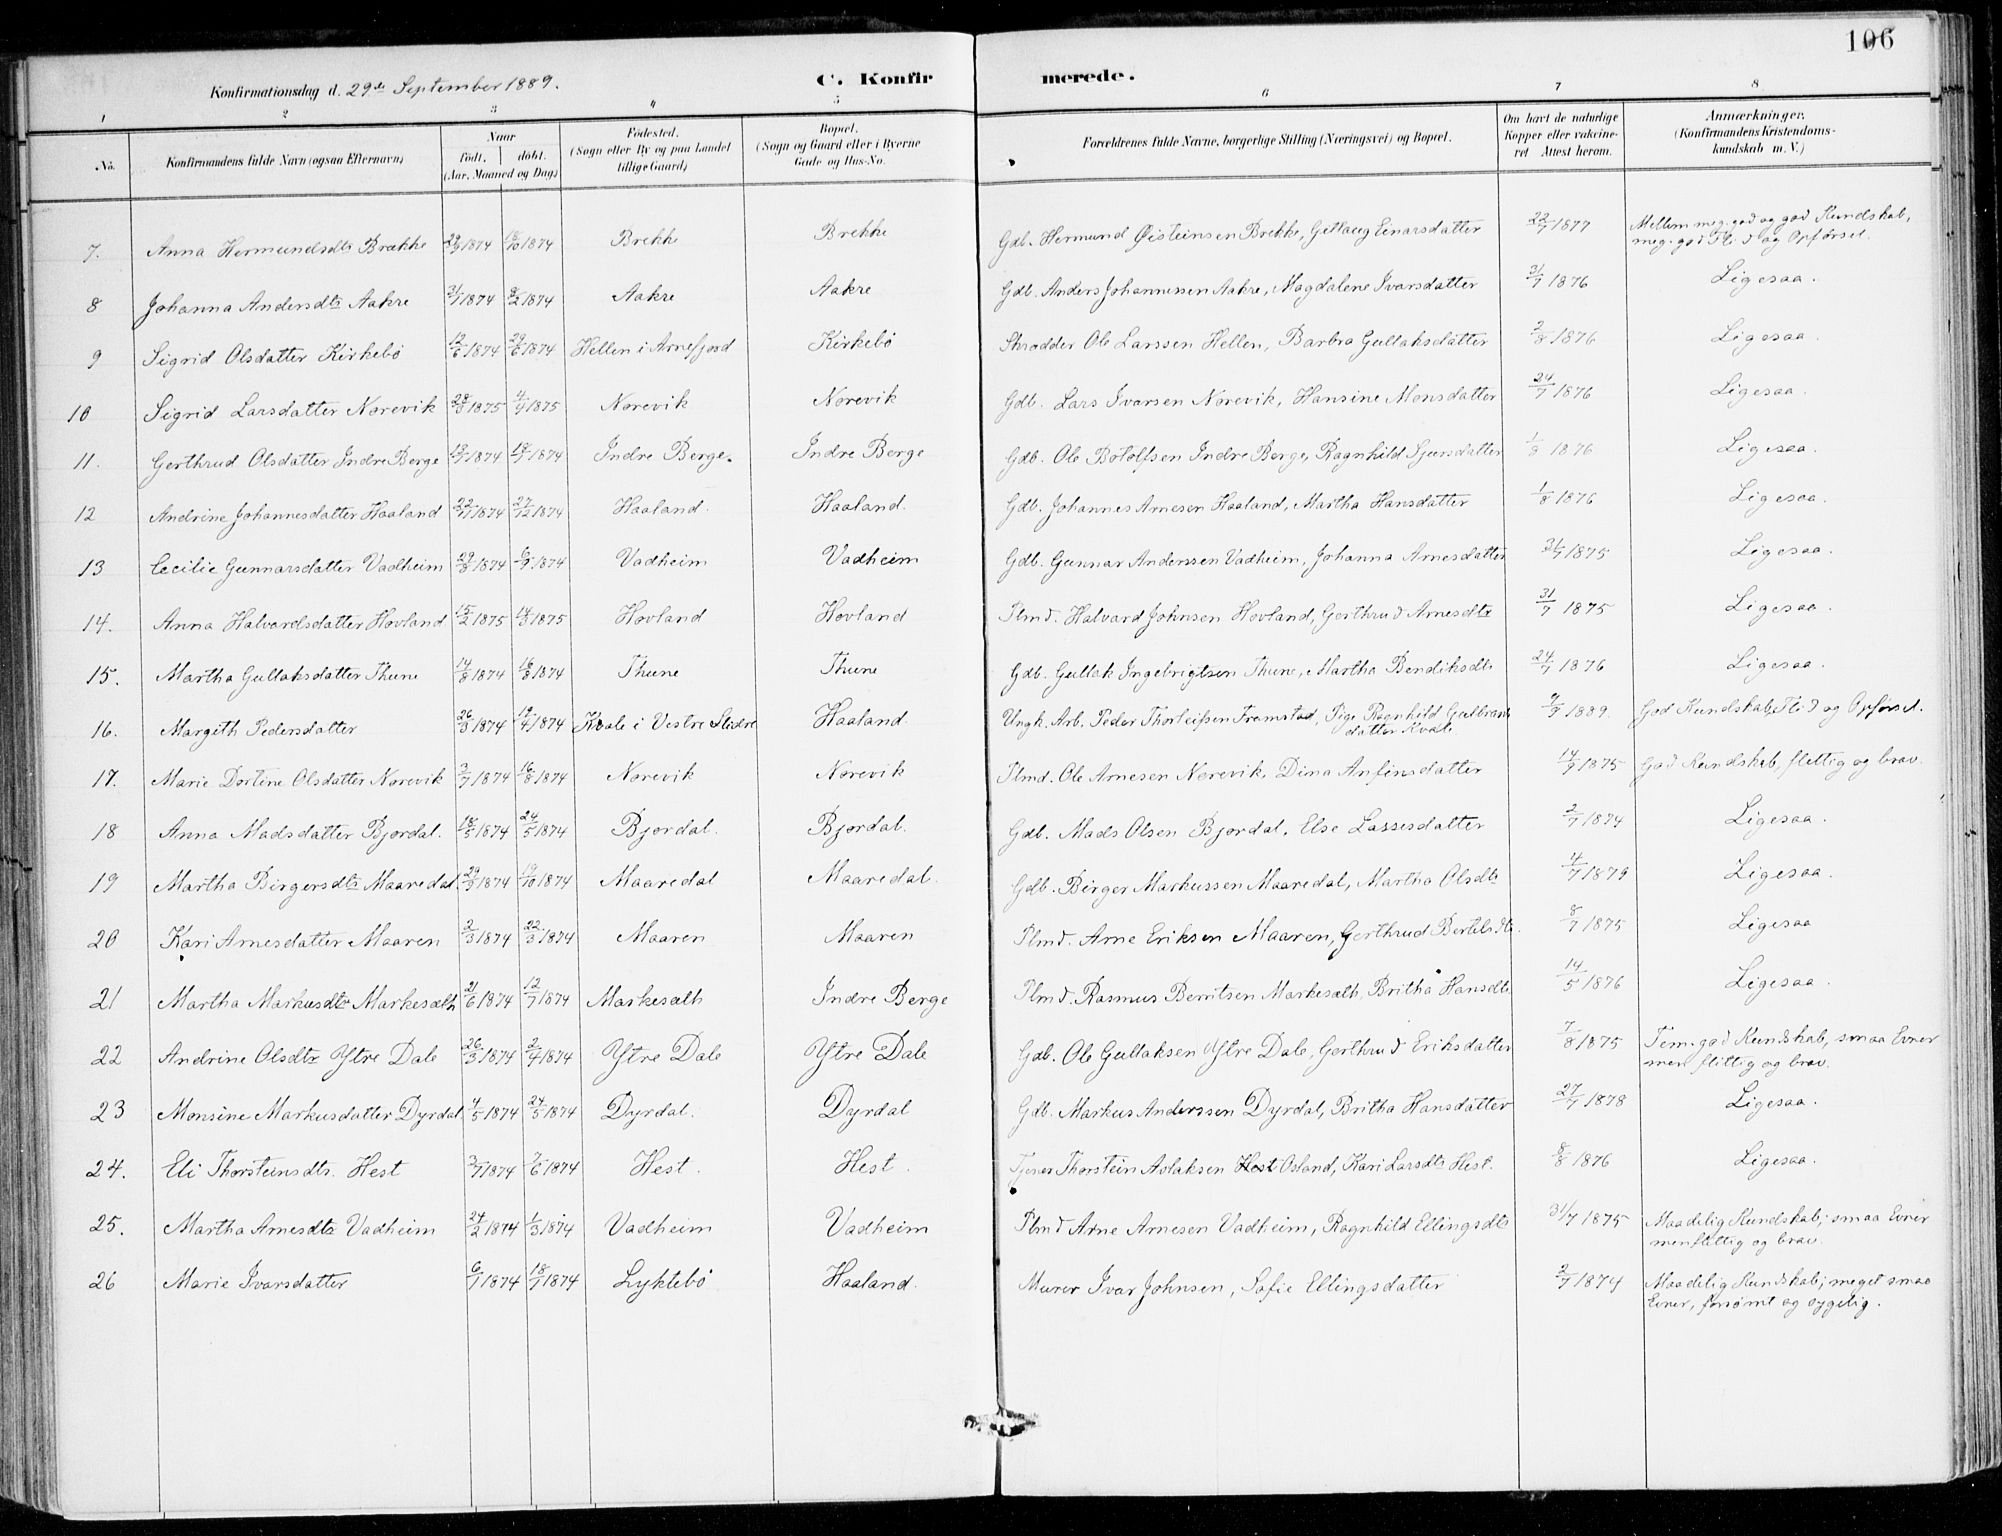 106
Konfirmationsdag d. 29de September 1889.
C. Konfirmerede.
1 2 3 4 5 6 7 8
No. Konfirmandens fulde Navn (ogsaa Efternavn) Naar født, døbt. (Aar, Maaned og Dag) Fødested. (Sogn eller By og paa Landet tillige Gaard) Bopæl. (Sogn og Gaard eller i Byerne Gade og Hus-No. Forældrenes fulde Navne, borgerlige Stilling (Næringsvei) og Bopæl. Om havt de naturlige Kopper eller vaccineret Attest herom. Anmærkninger. (Konfirmandens Kristendomskundskab m. V.)
7. Anna Hermundsdtr Brække 29/9 1874 18/10 1874 Brekke Brekke Gdb. Hermund Øisteinsen Brekke, Gitlaug Einarsdatter 22/7 1877 Mellem meg. god og god Kundskab, meg. god Flid og Opførsel.
8 Johanna Andersdtr Aakre 21/1 1874 8/2 1874 Aakre Aakre Gdb. Anders Johannessen Aakre, Magdalene Ivarsdatter 31/7 1876 Ligesaa.
9 Sigrid Olsdatter Kirkebø 12/6 1874 29/6 1874 Hellen i Arnefjord Kirkebø Skrædder Ole Larssen Hellen, Barbra Gullaksdatter 2/8 1876 Ligesaa.
10 Sigrid Larsdatter Norevik 28/3 1875 4/4 1875 Norevik Norevik Gdb. Lars Ivarsen Norevik, Hansine Monsdatter 24/7 1876 Ligesaa.
11. Gerthrud Olsdatter Indre Berge 13/7 1874 19/7 1874 Indre Berge. Indre Berge Gdb. Ole Botolfsen Indre Berge, Ragnhild Sjursdatter 1/8 1876 Ligesaa.
12 Andrine Johannesdatter Haaland 22/11 1874 27/12 1874 Haaland. Haaland. Gdb. Johannes Arnesen Haaland, Martha Hansdatter 1/8 1876 Ligesaa.
13 Cecilie Gunnarsdatter Vadheim 29/8 1874 6/9 1874 Vadheim Vadheim Gdb. Gunnar Anderssen Vadheim, Johanna Arnesdatter 31/7 1875 Ligesaa.
14. Anna Halvardsdatter Hovland 15/2 1875 14/3 1875 Hovland Hovland Plmd. Halvard Johnsen Hovland, Gerthrud Arnesdtr 31/7 1875 Ligesaa.
15. Martha Gullaksdatter Thune 14/8 1874 16/8 1874 Thune Thune Gdb. Gullak Ingebrigtsen Thune, Martha Bendiksdtr 24/7 1876 Ligesaa.
16. Margith Pedersdatter 26/3 1874 19/4 1874 Kvale i Vestre Slidre Haaland Ungk. Arb. Peder Thorleifsen Framstad, Pige Ragnhild Gulbrandsdatter Kvale 9/9 1889. God Kundskab, Flid og Opførsel.
17. Marie Dortine Olsdatter Norevik 3/7 1874 16/8 1874 Norevik Norevik Plmd. Ole Arnesen Norevik, Dina Anfinsdatter 14/9 1875 God Kundskab, flittig og brav.
18 Anna Madsdatter Bjordal. 18/5 1874 24/5 1874 Bjordal. Bjordal. Gdb. Mads Olsen Bjordal, Else Lassesdatter 2/7 1874 Ligesaa.
19 Martha Birgersdtr Maaredal. 29/9 1874 19/10 1874 Maaredal Maaredal. Gdb. Birger Markussen Maaredal, Martha Olsdtr 4/7 1879 Ligesaa.
20 Kari Arnesdatter Maaren 2/3 1874 22/3 1874 Maaren Maaren Plmd. Arne Eriksen Maaren, Gerthrud Bertelsdtr. 8/7 1875 Ligesaa
21 Martha Markusdtr Markesæth 21/6 1874 12/7 1874 Markesæth Indre Berge Plmd. Rasmus Berritsen Markesæth, Britha Hansdtr 14/5 1876 Ligesaa.
22 Andrine Olsdtr Ytre Dale 26/3 1874 2/4 1874 Ytre Dale Ytre Dale Gdb. Ole Gullaksen Ytre Dale, Gerthrud Eriksdatter 7/8 1875 Tem. god Kundskab, smaa Evner men flittig og brav.
23 Monsine Markusdatter Dyrdal 4/5 1874 24/5 1874 Dyrdal. Dyrdal Gdb. Markus Anderssen Dyrdal, Britha Hansdatter 27/7 1878 Ligesaa.
24. Eli Thorsteinsdtr. Hest 3/7 1874 7/6 1874 Hest. Hest. Tjener Thorstein Aslaksen Hest Osland, Kari Larsdtr Hest. 8/8 1876 Ligesaa.
25. Martha Arnesdtr Vadheim 24/2 1874 1/3 1874 Vadheim Vadheim Plmd Arne Arnesen Vadheim, Ragnhild Ellingsdtr 31/7 1875 Maadelig Kundskab; smaa Evner men flittig og brav.
26 Marie Ivarsdatter 6/1 1874 18/1 1874 Lyktebø Haaland. Murer Ivar Johnsen, Sofie Ellingsdatter 2/7 1874 Maadelig Kundskab; meget smaa Evner, forsømt og sygelig.